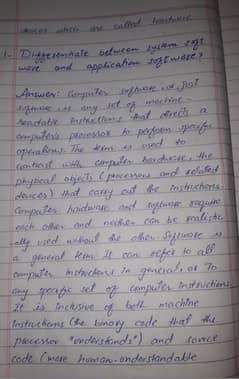 devices which are called hardware
1- Differentiate between system soft
ware and application software?
Answer: Computer software or just
software is any set of machine-
readable instructions that directs a
computer's processor to perform specific
operations. The term is used to
contrast with computer hardware, the
physical objects (processors and related
devices) that carry out the instructions.
Computer hardware and software require
each other and neither can be realistic
ally used without the other. Software is
a general term. It can refer to all
computer instructions in general, or To
any specific set of computer instructions.
It is inclusive of both machine
instructions (the binary code that the
processor "understands") and source
code (more human-understandable